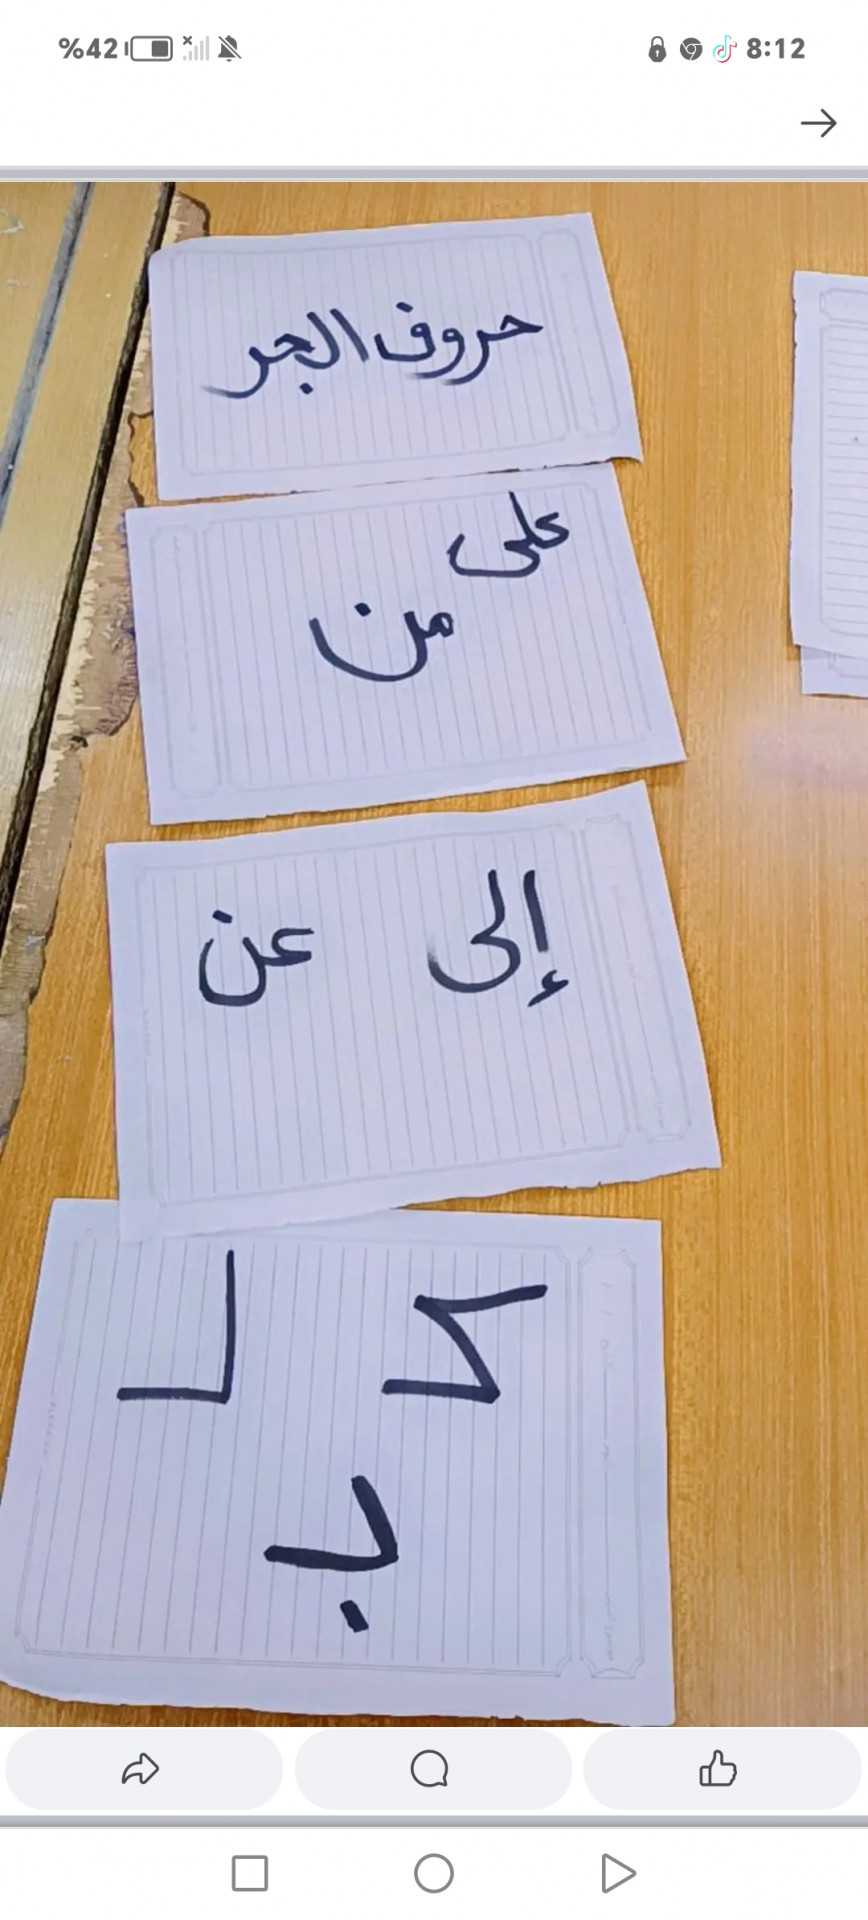 %42 8:12
حروف الجر
على
من
إلى عن
كـ لـ
بـ